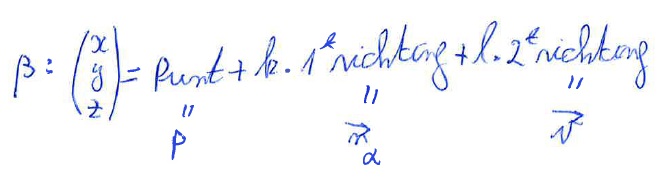 β: (x y z) = Punt + k. 1ᵉ richting + l. 2ᵉ richting
" " "
P n⃗α v⃗